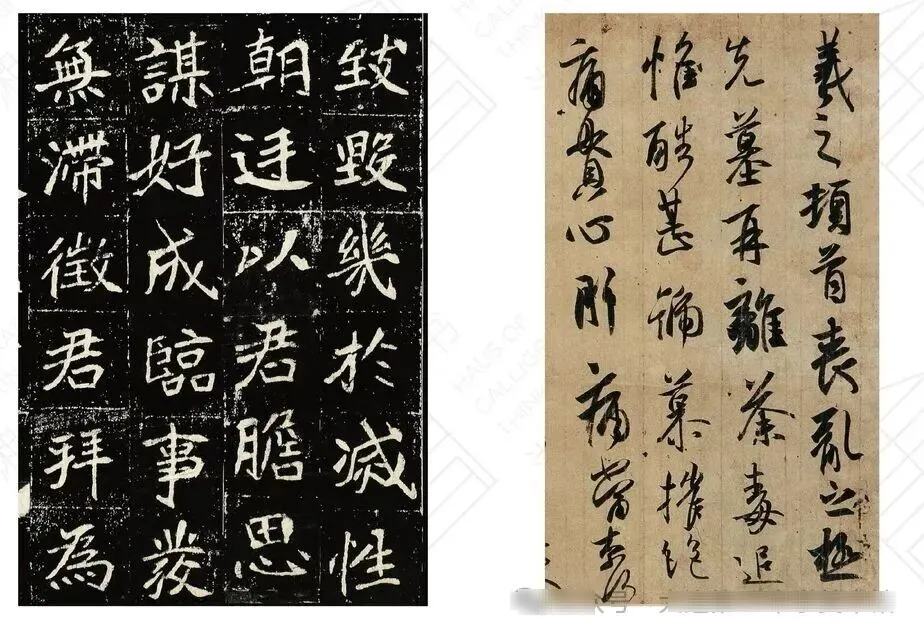 致毀幾於滅性
朝廷以君膽思
謀好成臨事發
無滯徵君拜為
羲之頓首喪亂之極
先墓再離荼毒追
惟酷甚號慕摧絕
痛貫心肝痛當奈何